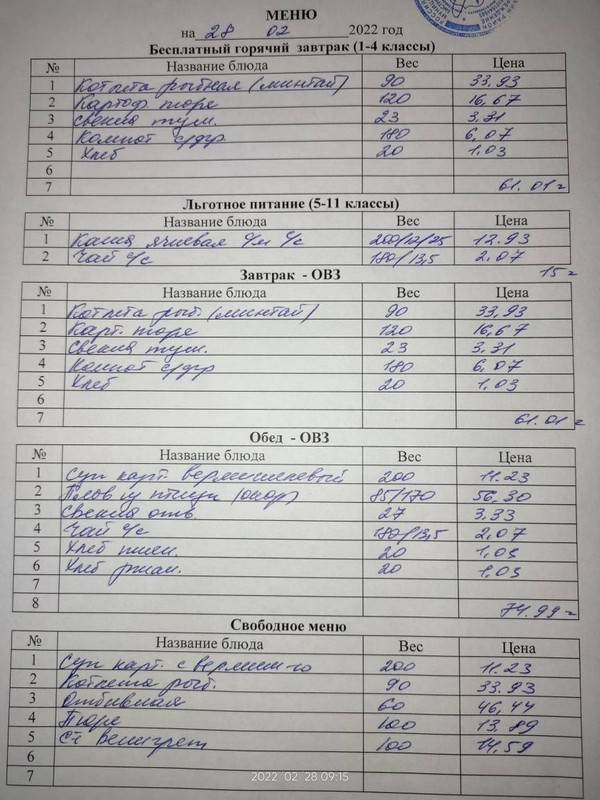 МЕНЮ
на 28 02 2022 год
Бесплатный горячий завтрак (1-4 классы)
№ Название блюда Вес Цена
1 Котлета рыбная (минтай) 90 33,93
2 Картоф пюре 120 16,67
3 Свекла туш. 23 3,31
4 Компот с/фр 180 6,07
5 Хлеб 20 1,03
6
7 61.01
Льготное питание (5-11 классы)
№ Название блюда Вес Цена
1 Каша ячневая с/с 200/12/25 12.93
2 Чай с/с 180/13,5 2.07
15
Завтрак - ОВЗ
№ Название блюда Вес Цена
1 Котлета рыб (минтай) 90 33,93
2 Карт. пюре 120 16,67
3 Свекла туш. 23 3,31
4 Компот с/фр 180 6,07
5 Хлеб 20 1,03
6
7 61.01
Обед - ОВЗ
№ Название блюда Вес Цена
1 Суп карт. вермишелевый 200 11.23
2 Плов из птицы (окор) 85/170 56,30
3 Свекла отв. 27 3,33
4 Чай с/с 180/13,5 2,07
5 Хлеб пшен. 20 1,03
6 Хлеб ржан. 20 1,03
7
8 74.99
Свободное меню
№ Название блюда Вес Цена
1 Суп карт. с вермиш-ю 200 11.23
2 Котлета рыб. 90 33.93
3 Отбивная 60 46,44
4 Пюре 100 13,89
5 Винегрет 100 14,59
6
7
2022 02 28 09:15